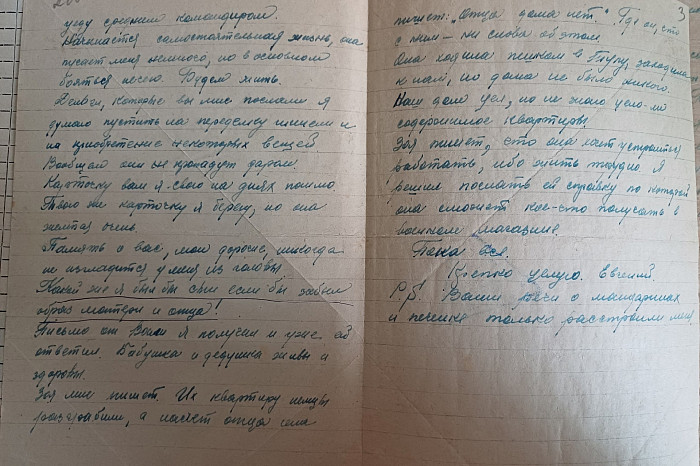 уеду средним командиром.
Начинается самостоятельная жизнь, она
пугает меня немного, но в основном
бояться нечего. Будем жить.
Деньги, которые вы мне послали я
думаю пустить на переделку шинели и
на приобретение некоторых вещей
Вообщем они не пропадут даром.
Карточку вам я свою на днях пошлю.
Твою же карточку я берегу, но она
желтая очень.
Память о вас, мои дорогие, никогда
не изгладится у меня из головы.
Какой же я был бы сын если бы забыл
образ матери и отца!
Письмо от Вали я получил и уже ей
ответил. Бабушка и дедушка живы и
здоровы.
Зоя мне пишет. Их квартиру немцы
разграбили, а насчет отца она
3
пишет: "Отца дома нет." Где он, что
с ним – ни слова об этом.
Она ходила пешком в Тулу, заходила
к нам, но дома не было никого.
Наш дом цел, но не знаю цело-ли
содержимое квартиры.
Зоя пишет, что она хочет устроиться
работать, ибо жить трудно. Я
решил послать ей справку по которой
она сможет кое-что получать в
военном магазине.
Пока все.
Крепко целую. Евгений.
P.S. Ваши речи о мандаринах
и печенье только расстроили меня